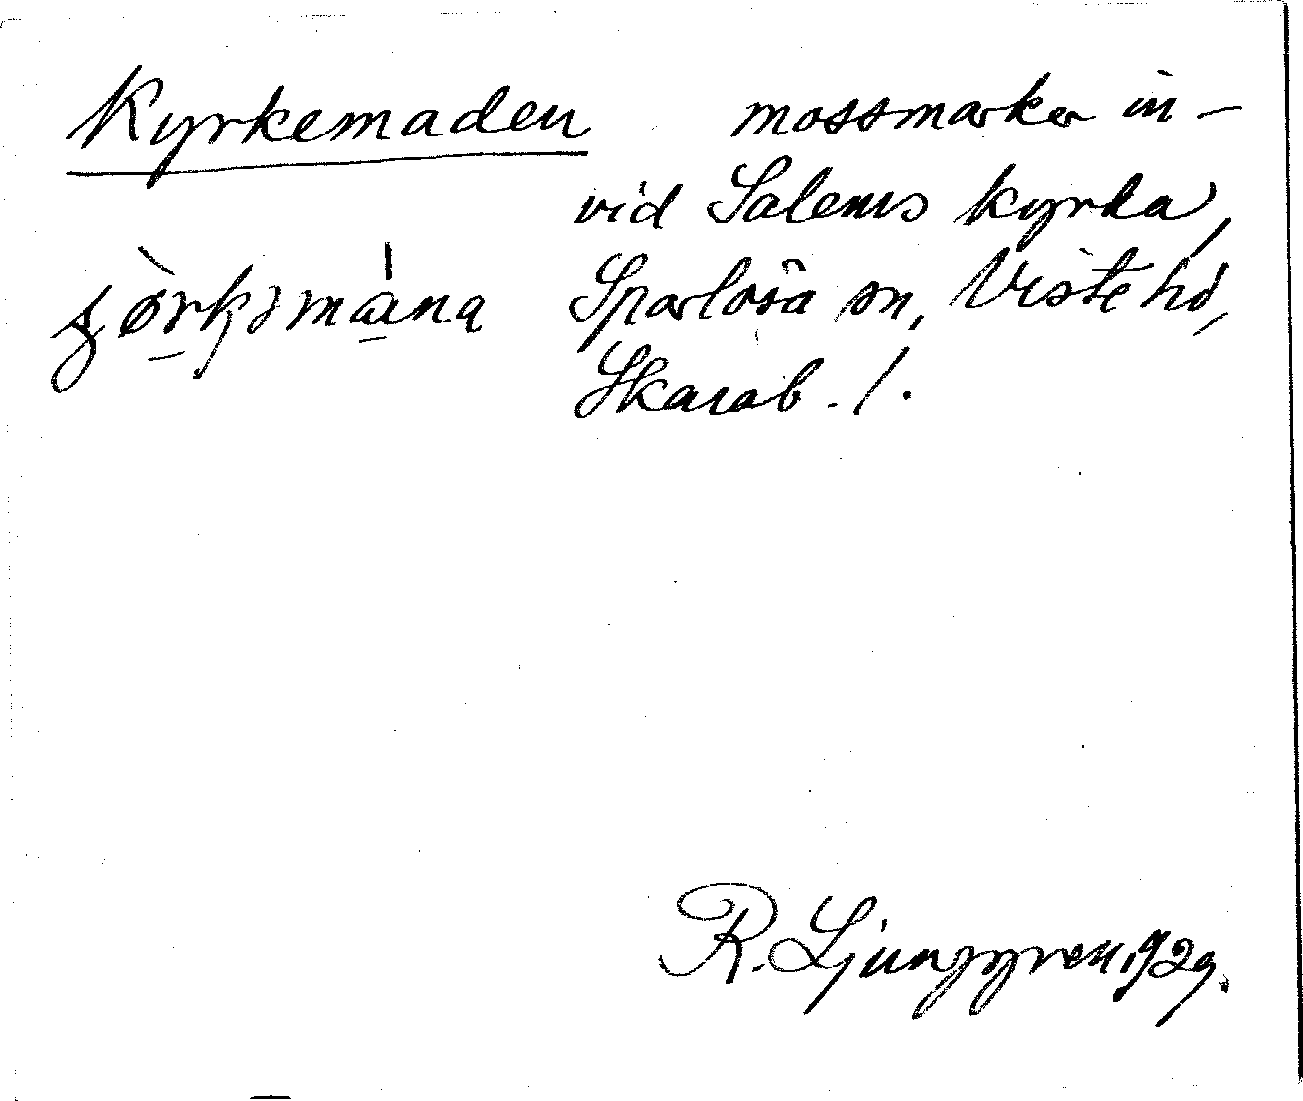 Kyrkemaden mossmarker in-
vid Salems kyrka,
Sparlösa sn, Viste hd,
Skarab. l.
R. Ljunggren 1929.